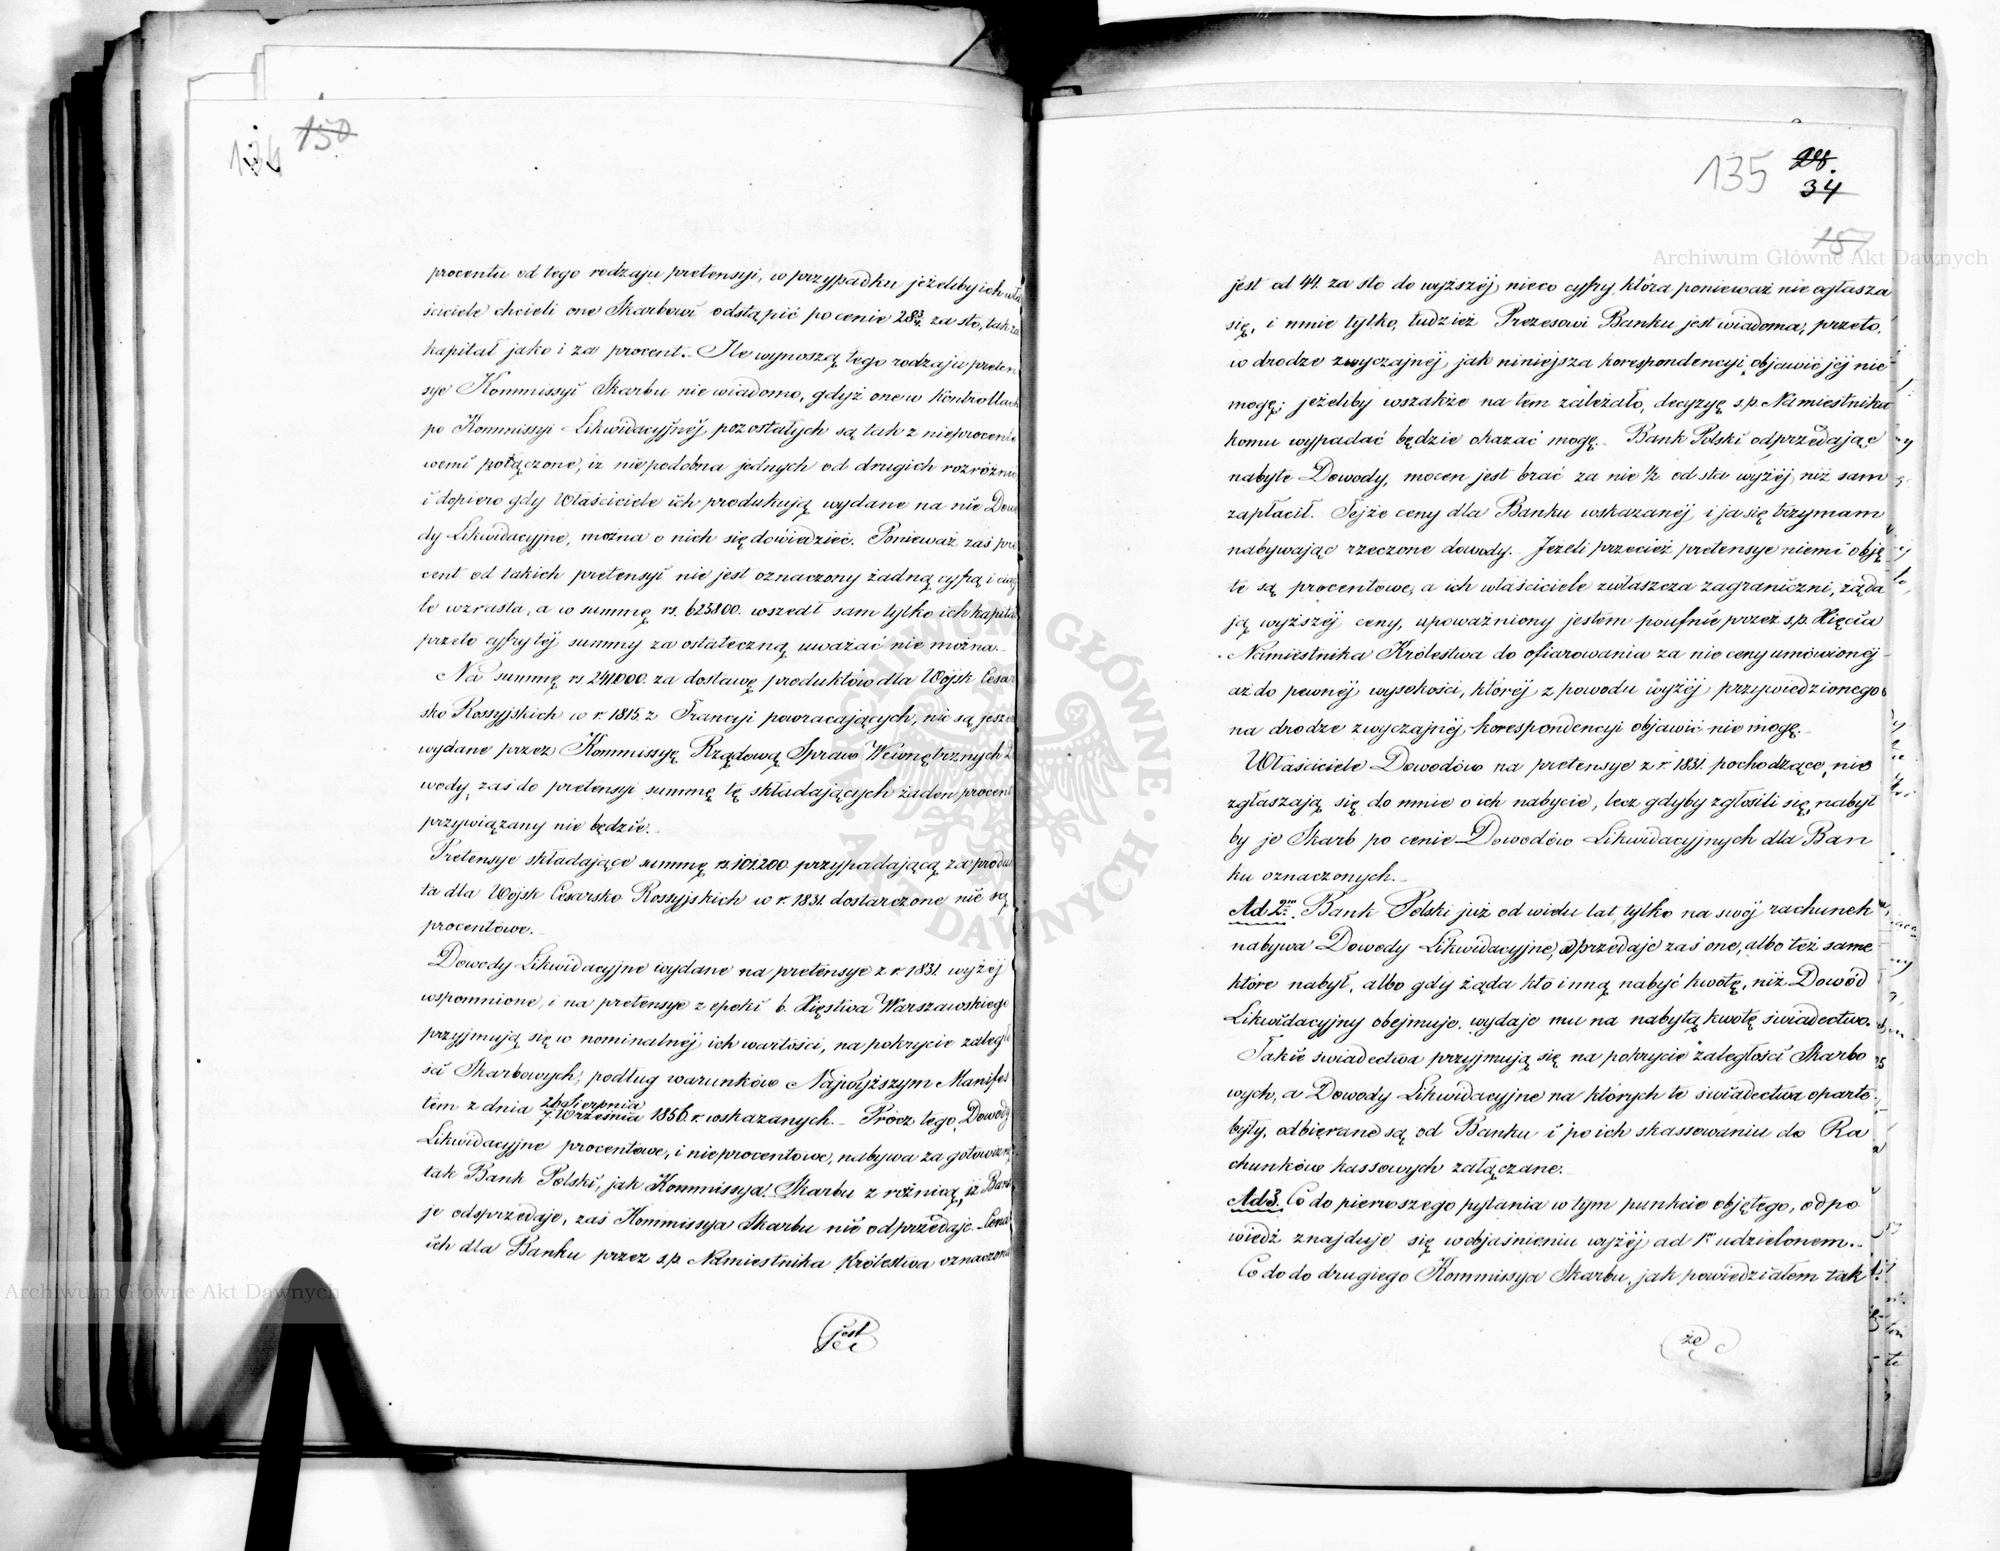 134 150
procentu od tego rodzaju pretensyi, w przypadku jeżeliby ich wła
ściciele chcieli one Skarbowi odstąpić po cenie 28¾ za sto, tak za
kapitał jako i za procent. Ile wynoszą tego rodzaju preten
sye Kommissyi Skarbu nie wiadomo, gdyż one w kontrollach
po Kommissyi Likwidacyjnéj pozostałych są tak z nieprocento
wemi połączone, iż niepodobna jednych od drugich rozróżnić
i dopiero gdy Właściciele ich produkują wydane na nie Dowo
dy Likwidacyjne, można o nich się dowiedzieć. Ponieważ zaś pro
cent od takich pretensyi nie jest oznaczony żadną cyfrą i ciąg
le wzrasta, a w summę rs. 623800. wszedł sam tylko ich kapitał
przeto cyfry téj summy za ostateczną uważać nie można.
Na summę rs. 241000. za dostawę produktów dla Wojsk Cesar
sko Rossyjskich w r. 1815. z Francyi powracających, nie są jeszcze
wydane przez Kommissyę Rządową Spraw Wewnętrznych
wody, zaś do pretensyi summę tę składających żaden procent
przywiązany nie będzie.
Pretensye składające summę rs. 101200 przypadającą za produk
ta dla Wojsk Cesarsko Rossyjskich w r. 1831. dostarczone nie są
procentowe.
Dowody Likwidacyjne wydane na pretensye z r. 1831. wyżéj
wspomnione, i na pretensye z epoki b. Xięstwa Warszawskiego
przyjmują się w nominalnéj ich wartości, na pokrycie zaległo
ści Skarbowych, podług warunków Najwyższym Manifes
tem z dnia 26 Sierpnia / 7 Września 1856. r. wskazanych. Prócz tego, Dowody
Likwidacyjne procentowe, i nieprocentowe, nabywa za gotowiznę
tak Bank Polski, jak Kommissya Skarbu z różnicą, iż Bank
je odsprzedaje, zaś Kommissya Skarbu nie odprzedaje. Cena
ich dla Banku przez s.p. Namiestnika Królestwa oznaczona
jest
135 28.
34
151
jest od 44. za sto do wyższéj nieco cyfry, która ponieważ nie ogłasza
się, i mnie tylko, tudzież Prezesowi Banku jest wiadoma, przeto,
w drodze zwyczajnéj, jak niniejsza korespondencyi, objawić jéj nie
mogę; jeżeliby wszakże na tem zależało, decyzyę s.p. Namiestnika
komu wypadać będzie okazać mogę. Bank Polski odprzedając
nabyte Dowody, mocen jest brać za nie ½ od sta wyżéj, niż sam
zapłacił. Tejże ceny dla Banku wskazanéj i ja się trzymam
nabywając rzeczone dowody. Jeżeli przecież pretensye niemi obję
te są procentowe, a ich właściciele zwłaszcza zagraniczni, żąda
ją wyższéj ceny, upoważniony jestem poufnie przez s.p. Xięcia
Namiestnika Królestwa do ofiarowania za nie ceny umówionéj
aż do pewnéj wysokości, któréj z powodu wyżéj przywiedzionego
na drodze zwyczajnéj korespondencyi objawić nie mogę.
Właściciele Dowodów na pretensye z r. 1831. pochodzące, nie
zgłaszają się do mnie o ich nabycie, lecz gdyby zgłosili się, nabył
by je Skarb po cenie Dowodów Likwidacyjnych dla Ban
ku oznaczonych.
Ad 2m. Bank Polski już od wielu lat, tylko na swój rachunek
nabywa Dowody Likwidacyjne, odprzedaje zaś one, albo też same
które nabył, albo gdy żąda kto inną nabyć kwotę, niż Dowód
Likwidacyjny obejmuje, wydaje mu na nabytą kwotę świadectwo.
Takie świadectwa przyjmują się na pokrycie zaległości Skarbo
wych, a Dowody Likwidacyjne na których te świadectwa oparte
były, odbierane są od Banku i po ich skassowaniu do Ra
chunków kassowych załączane.
Ad 3. Co do pierwszego pytania w tym punkcie objętego, odpo
wiedź znajduje się w objaśnieniu wyżéj ad 1m udzielonem.
Co do do drugiego Kommissya Skarbu, jak powiedziałem tak
że
Archiwum Główne Akt Dawnych
Archiwum Główne Akt Dawnych
ARCHIWUM GŁÓWNE AKT DAWNYCH